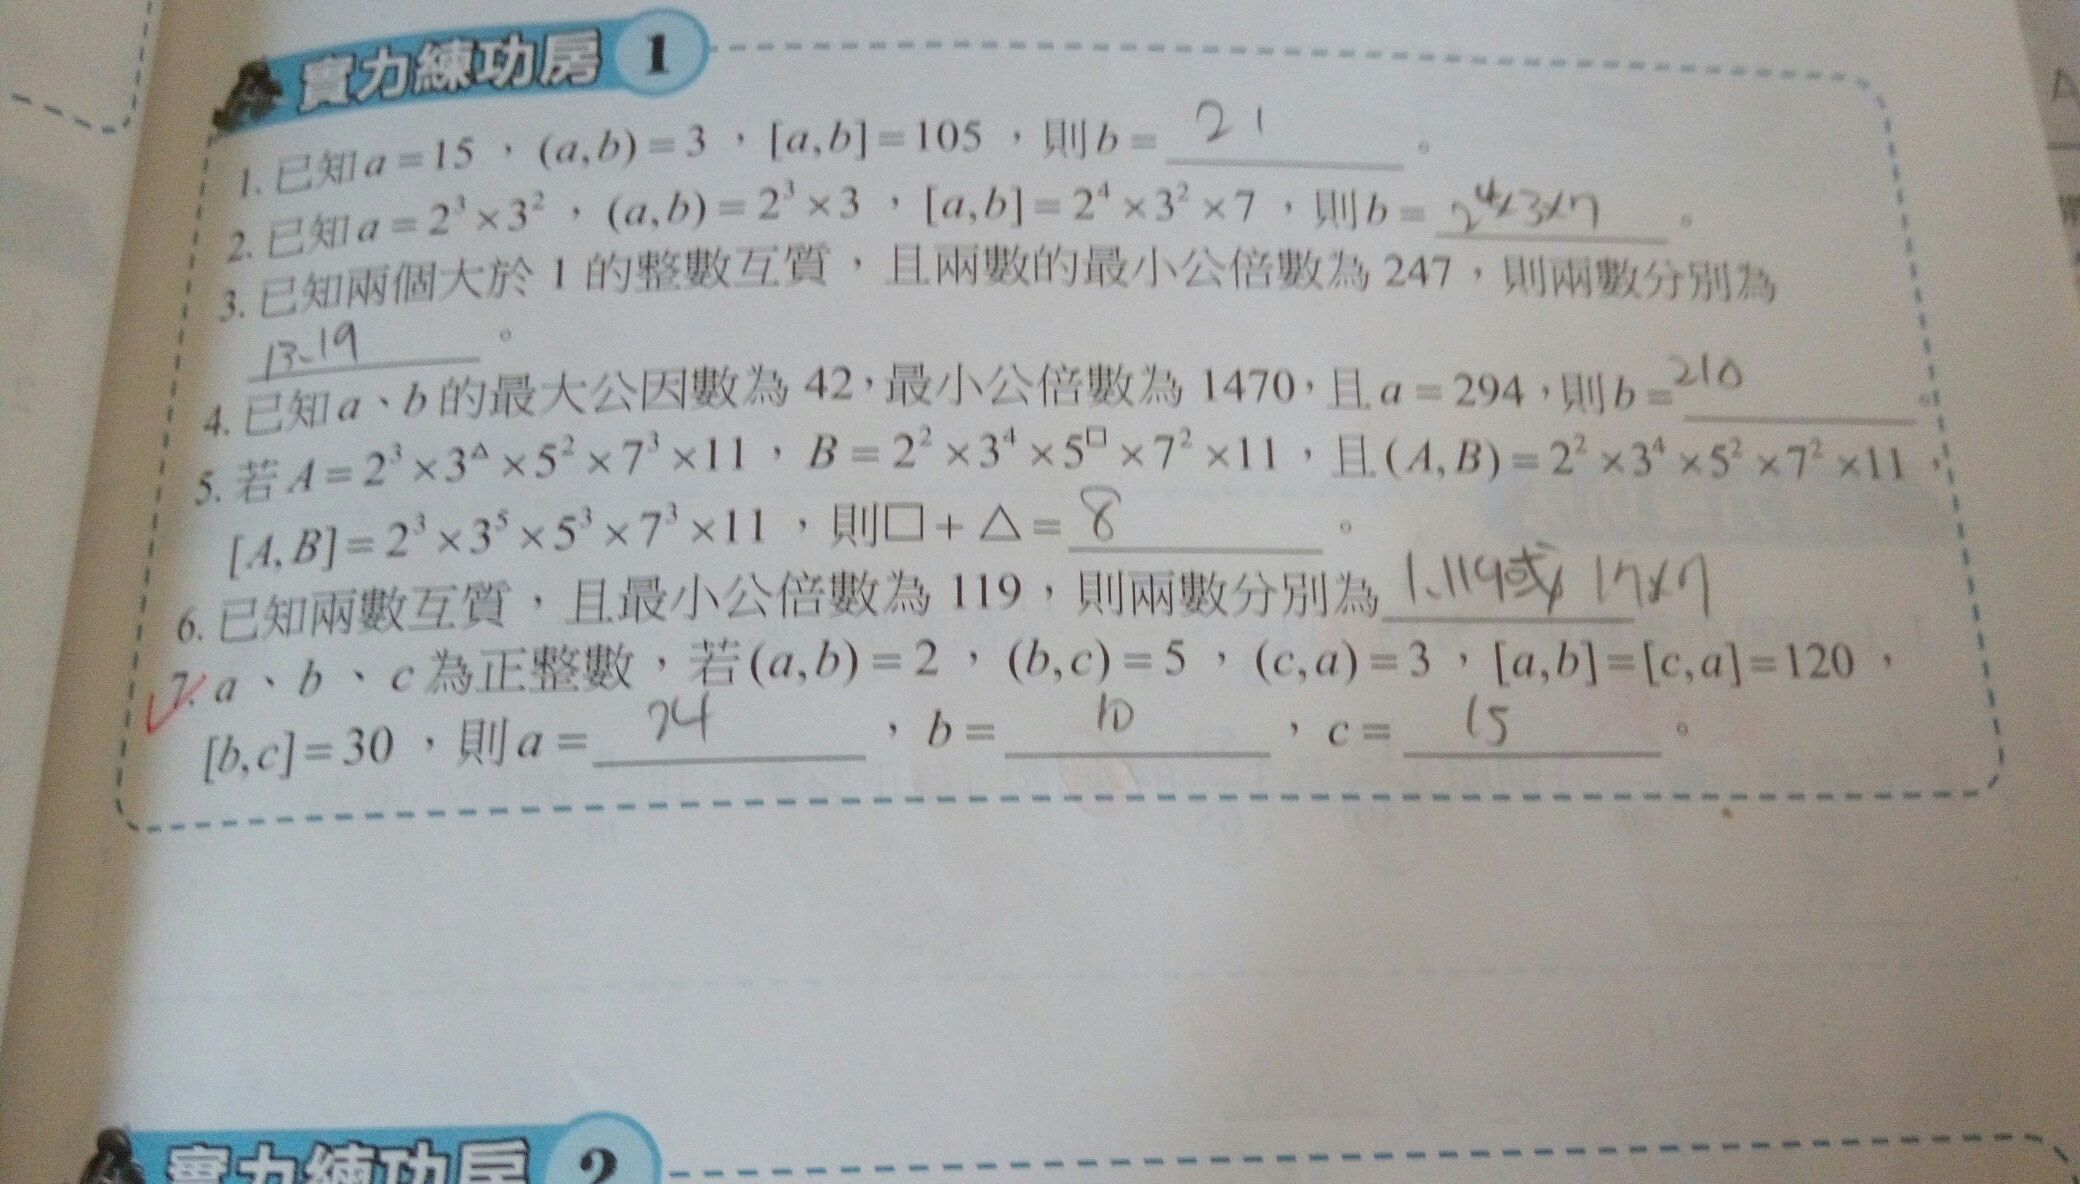 實力練功房 1
1. 已知a=15，(a,b)=3，[a,b]=105，則b= 21 。
2. 已知a=2³×3²，(a,b)=2³×3，[a,b]=2⁴×3²×7，則b= 2⁴×3×7 。
3. 已知兩個大於 1 的整數互質，且兩數的最小公倍數為 247，則兩數分別為
13、19 。
4. 已知a、b的最大公因數為 42，最小公倍數為 1470，且a=294，則b= 210 。
5. 若A=2³×3^△×5²×7³×11，B=2²×3⁴×5^□×7²×11，且(A,B)=2²×3⁴×5²×7²×11，
[A,B]=2³×3⁵×5³×7³×11，則□+△= 8 。
6. 已知兩數互質，且最小公倍數為 119，則兩數分別為 1、119或 17×7
7. a、b、c為正整數，若(a,b)=2，(b,c)=5，(c,a)=3，[a,b]=[c,a]=120，
[b,c]=30，則a= 24 ，b= 10 ，c= 15 。
實力練功房 2